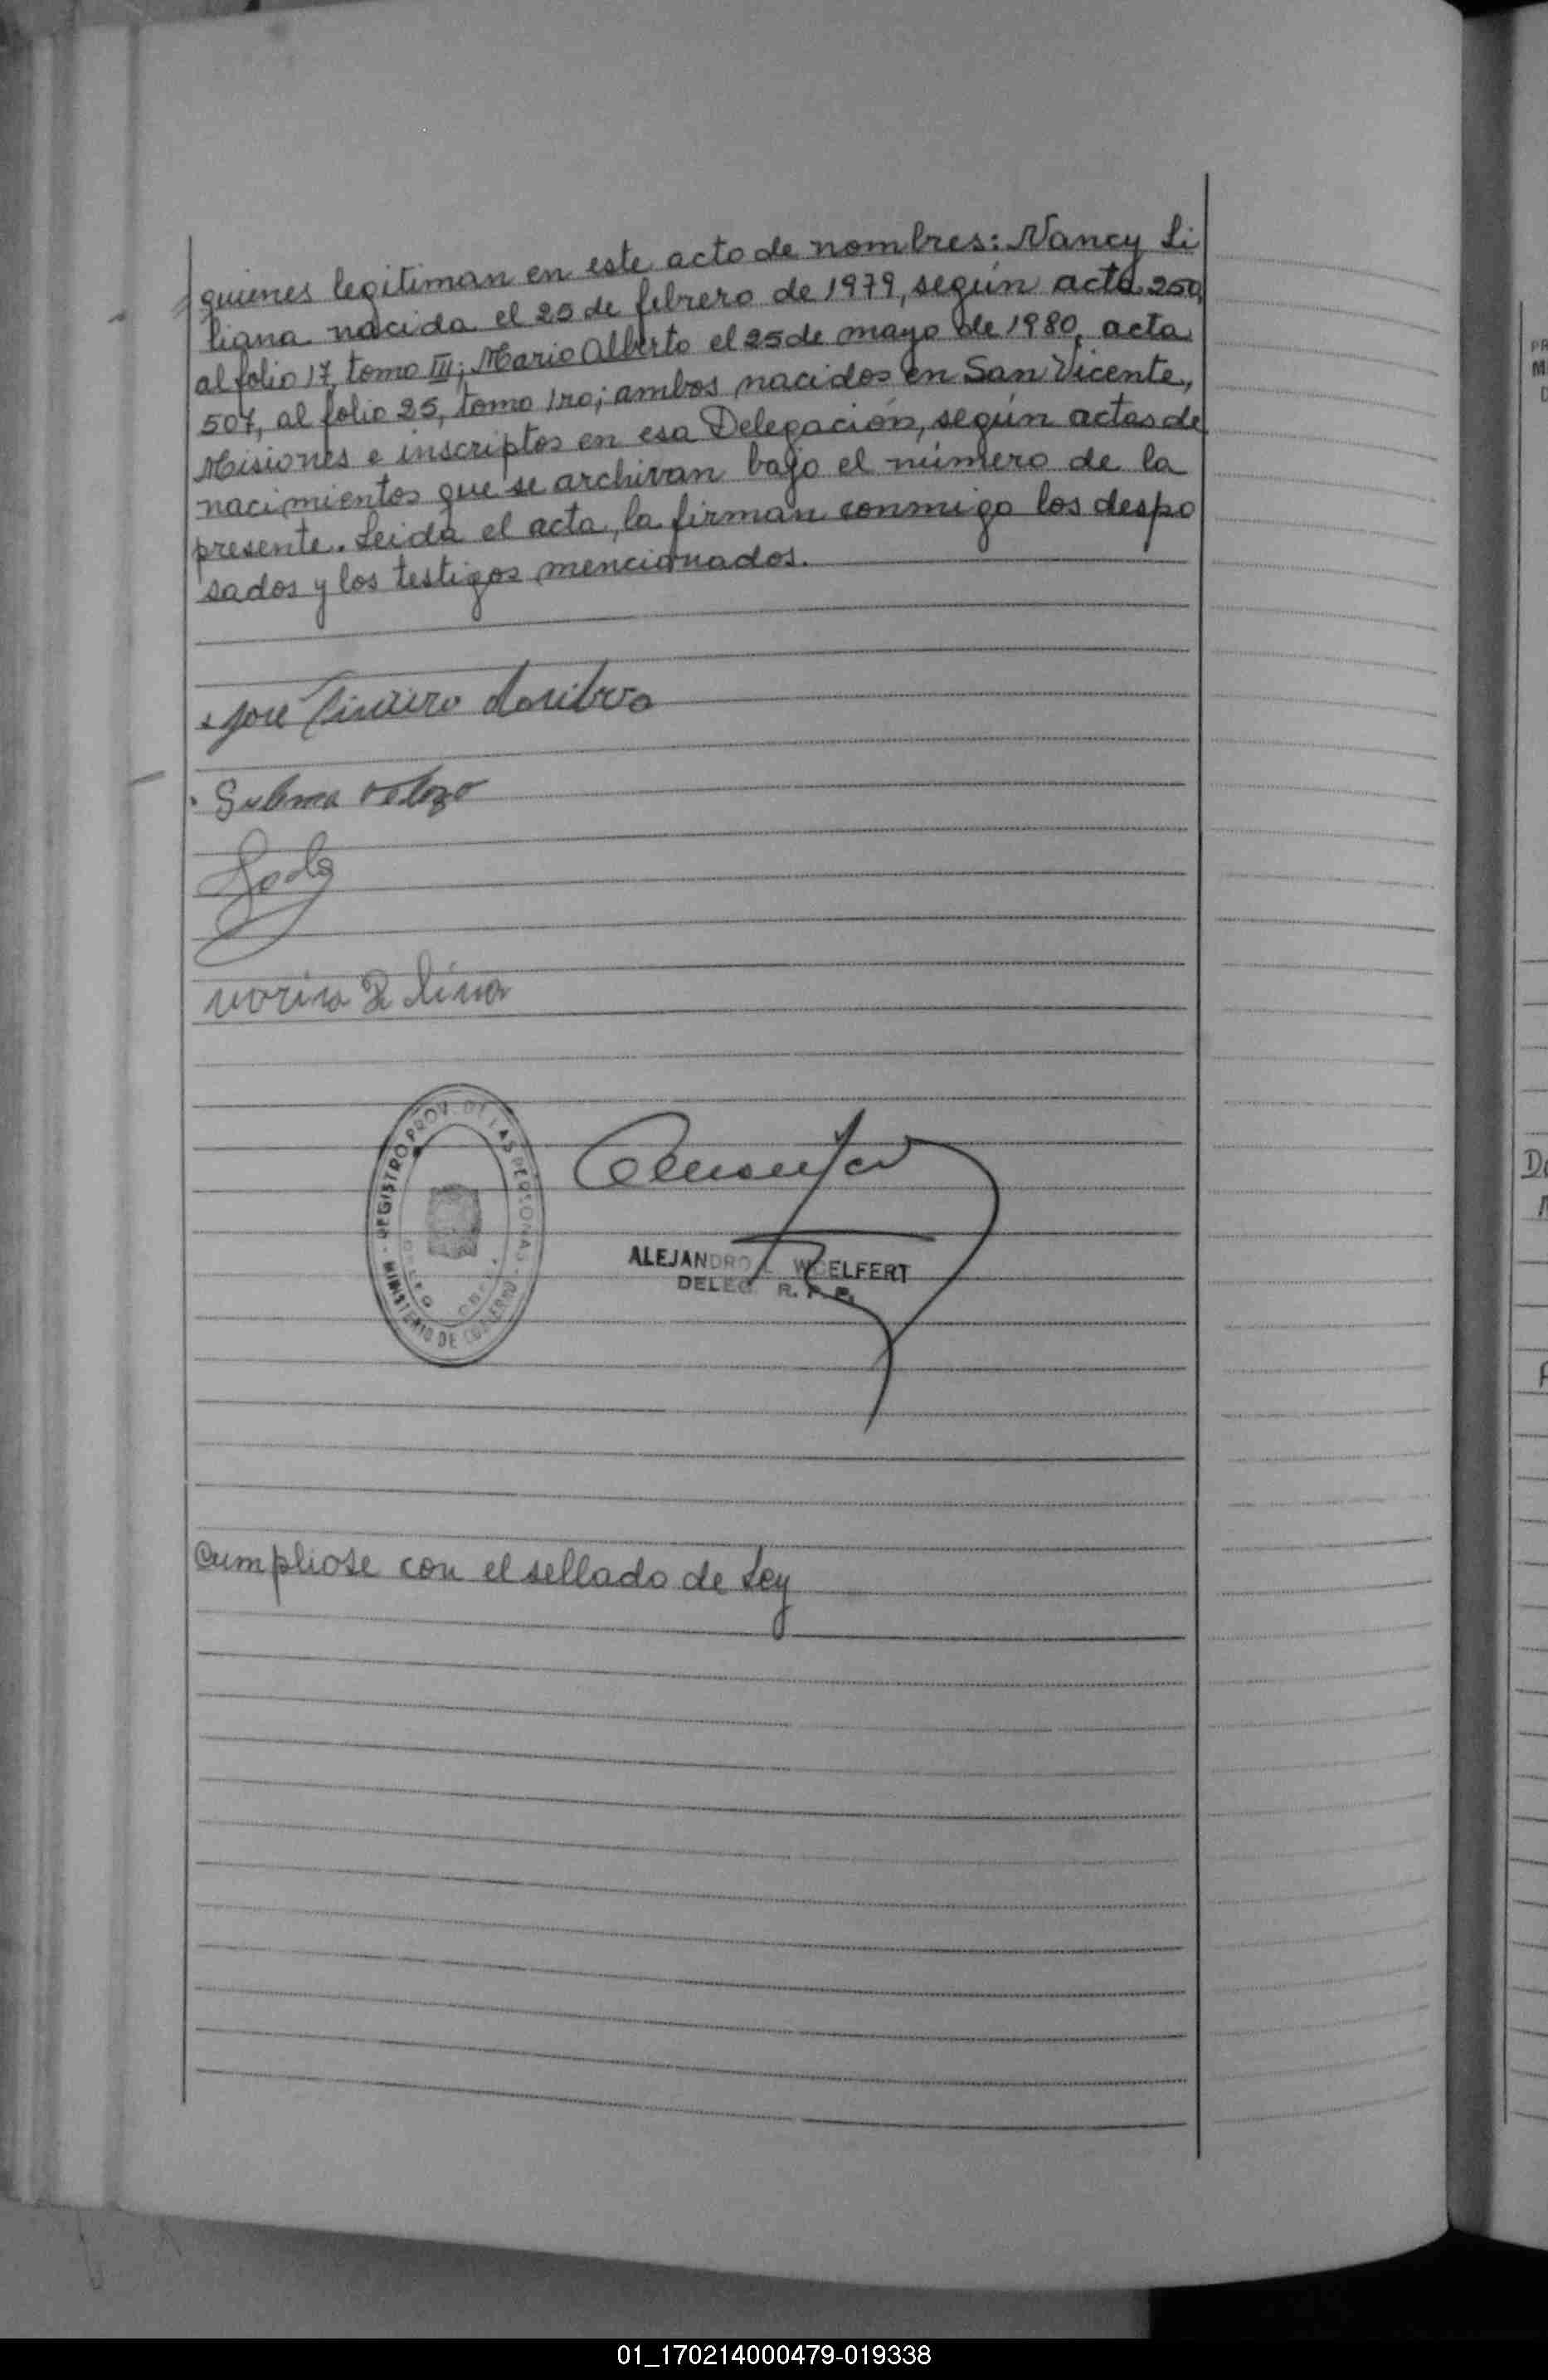 quienes legitiman en este acto de nombres: Nancy Li
liana nacida el 25 de febrero de 1979, según acta 250,
al folio 17, tomo III; Mario Alberto el 25 de mayo de 1980, acta
507, al folio 25, tomo 1ro; ambos nacidos en San Vicente,
Misiones e inscriptos en esa Delegación, según actas de
nacimientos que se archivan bajo el número de la
presente. Leida el acta, la firman conmigo los despo
sados y los testigos mencionados.
José
REGISTRO PROV. DE LAS PERSONAS - MINISTERIO DE GOBIERNO -
ALEJANDRO WOELFERT
DELEG. R. P. P.
Cumpliose con el sellado de Ley
01_170214000479-019338